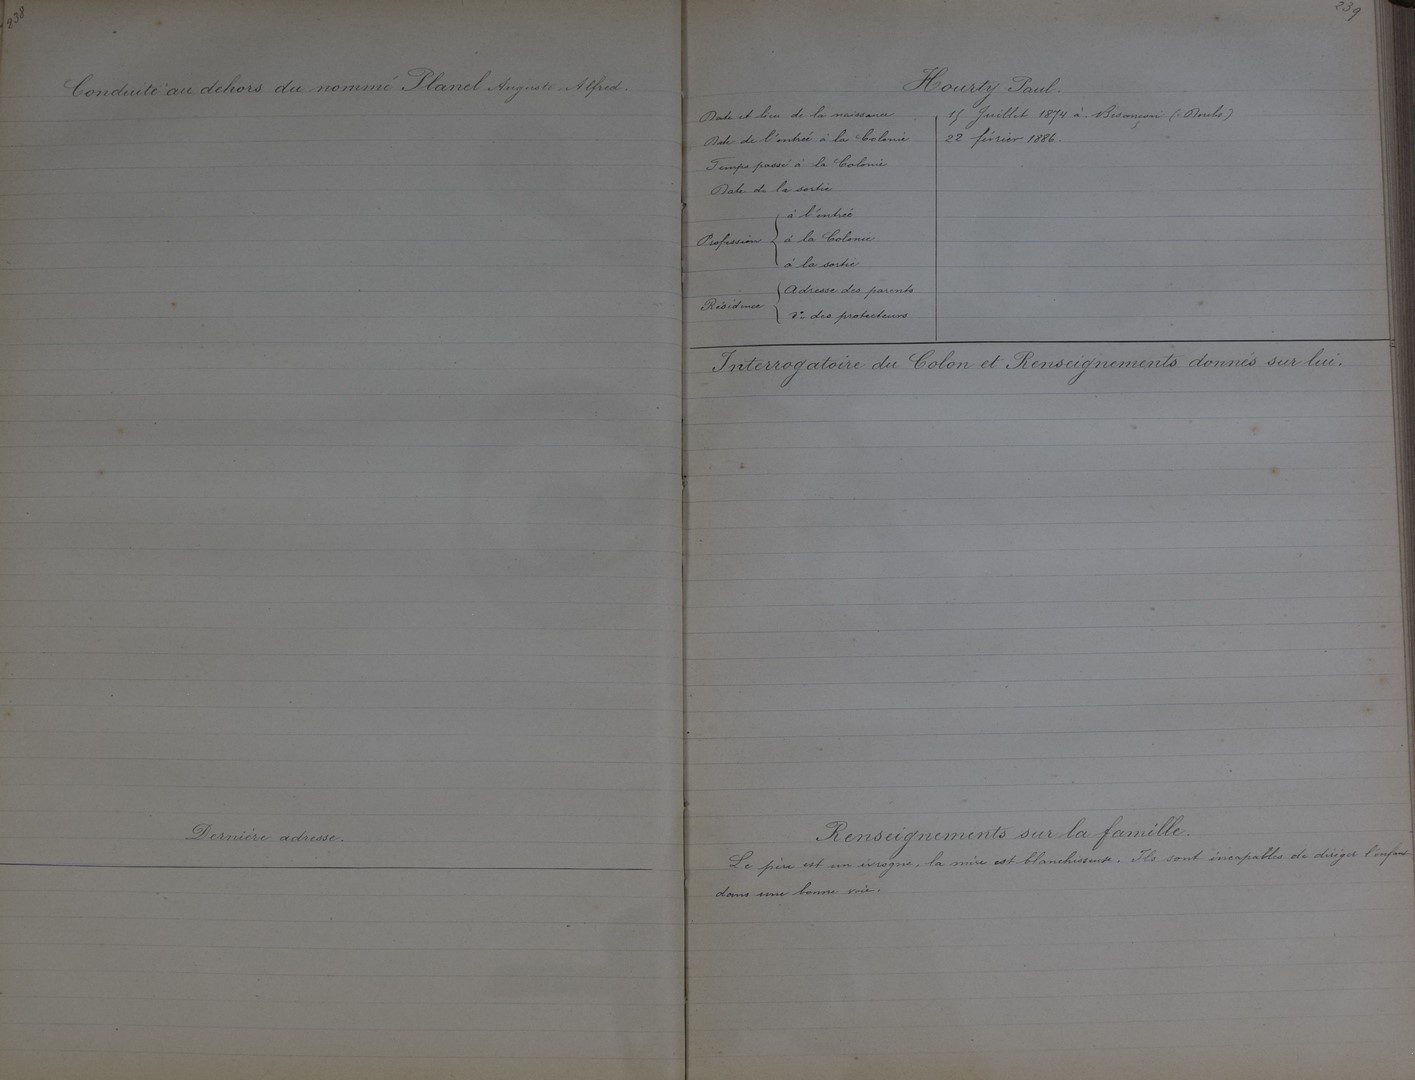 238
Conduite au dehors du nommé Planel Auguste. Alfred.
Dernière adresse.
239
Hourty Paul.
Date et lieu de la naissance 15 Juillet 1874 à Besançon (Doubs)
Date de l'entrée à la Colonie 22 février 1886.
Temps passé à la Colonie
Date de la sortie
Profession
à l'entrée
à la Colonie
à la sortie
Résidence
Adresse des parents
do des protecteurs
Interrogatoire du Colon et Renseignements donnés sur lui.
Renseignements sur la famille.
Le père est un ivrogne, la mère est blanchisseuse. Ils sont incapables de diriger l'enfant
dans une bonne voie.